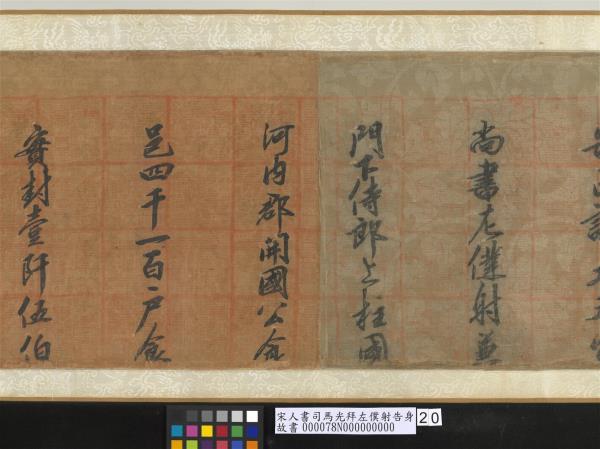 尚書左僕射兼
門下侍郎上柱國
河内郡開國公食
邑四千一百户食
實封壹阡伍伯
宋人書司馬光拜左僕射告身
故書 000078N000000000
20